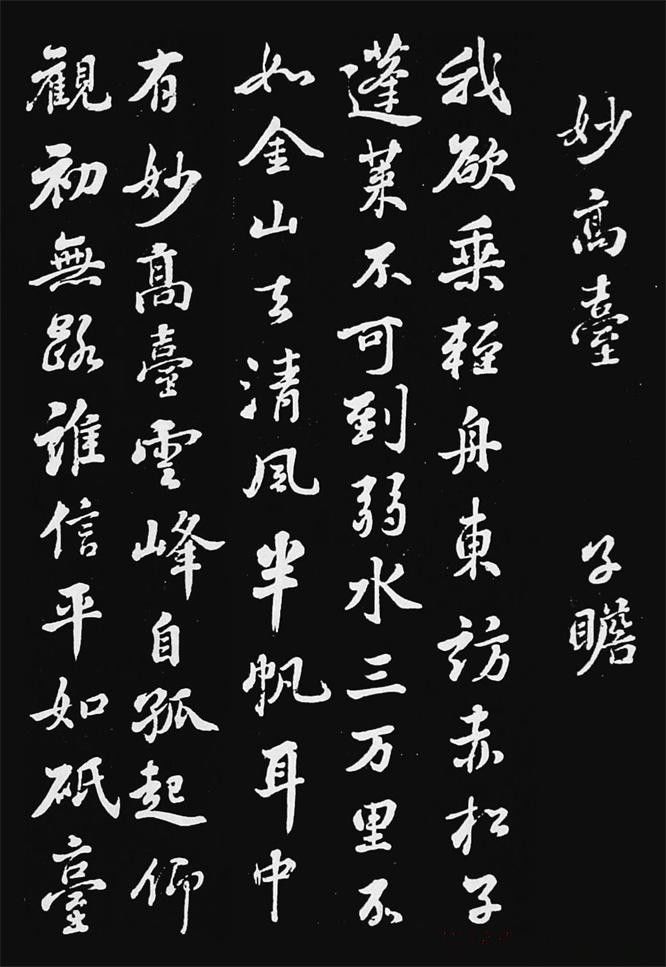 妙高臺 子瞻
我欲乘輕舟東訪赤松子
蓬萊不可到弱水三万里不
如金山去清風半帆耳中
有妙高臺雲峰自孤起仰
觀初無路誰信平如砥臺